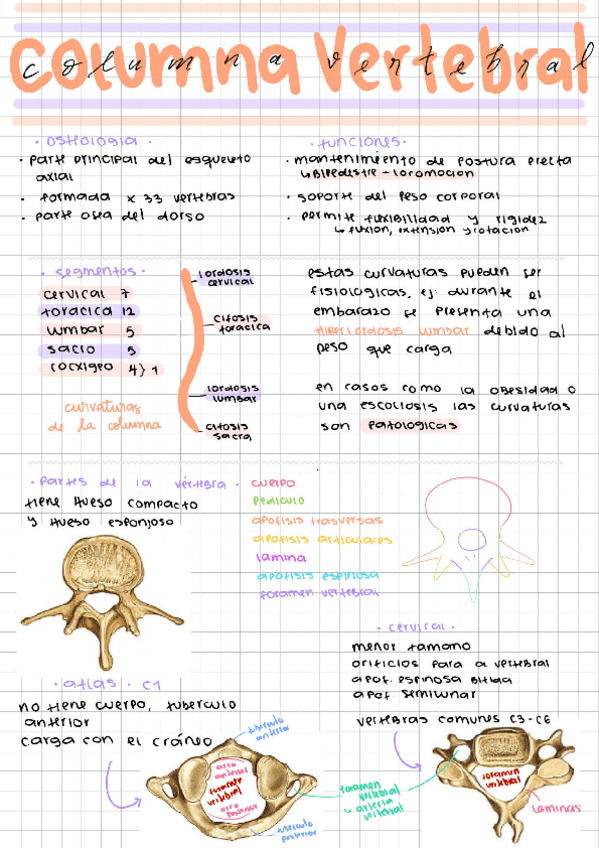 columna vertebral
columna vertebral
· osteologia ·
· parte principal del esqueleto
axial
· formada x 33 vertebras
· parte osea del dorso
· funciones ·
· mantenimiento de postura erecta
↳ bipedestre - locomocion
· soporte del peso corporal
· permite fuxibilidad y rigidez
↳ fuxion, extension y rotacion
· segmentos ·
cervical 7
toracica 12
lumbar 5
sacro 5
coxigeo 4 } 1
curvaturas
de la columna
lordosis
cervical
cifosis
toracica
lordosis
lumbar
cifosis
sacra
estas curvaturas pueden ser
fisiologicas, ej: durante el
embarazo se presenta una
hiperlordosis lumbar debido al
peso que carga
en casos como la obesidad o
una escoliosis las curvaturas
son patologicas
· partes de la vértebra ·
tiene hueso compacto
y hueso esponjoso
cuerpo
pediculo
apofisis trasversas
apofisis articulares
lamina
apofisis espinosa
foramen vertebral
· cervical ·
menor tamano
orificios para a vertebral
apof. espinosa bifida
apof. semilunar
vertebras comunes C3-C6
· atlas · C1
no tiene cuerpo, tuberculo
anterior
carga con el cráneo
tuberculo
anterior
arco
anterior
foramen
vertebral
arco
posterior
tuberculo
posterior
foramen
vertebral
↳ arteria
vertebral
foramen
vertebral
laminas